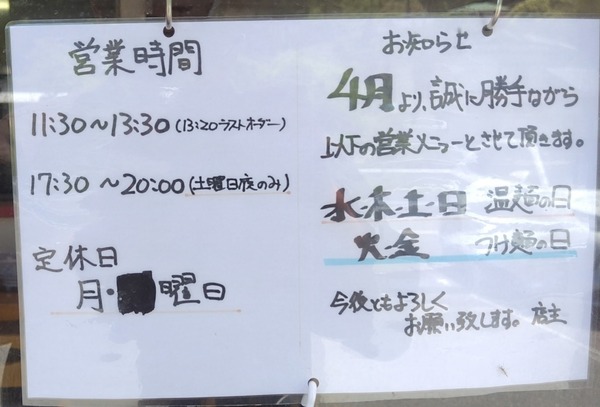 営業時間
11:30〜13:30(13:20ラストオーダー)
17:30〜20:00(土曜日夜のみ)
定休日
月・曜日
お知らせ
4月より、誠に勝手ながら
以下の営業メニューとさせて頂きます。
水・木・土・日 温麺の日
火・金 つけ麺の日
今後ともよろしく
お願い致します。店主